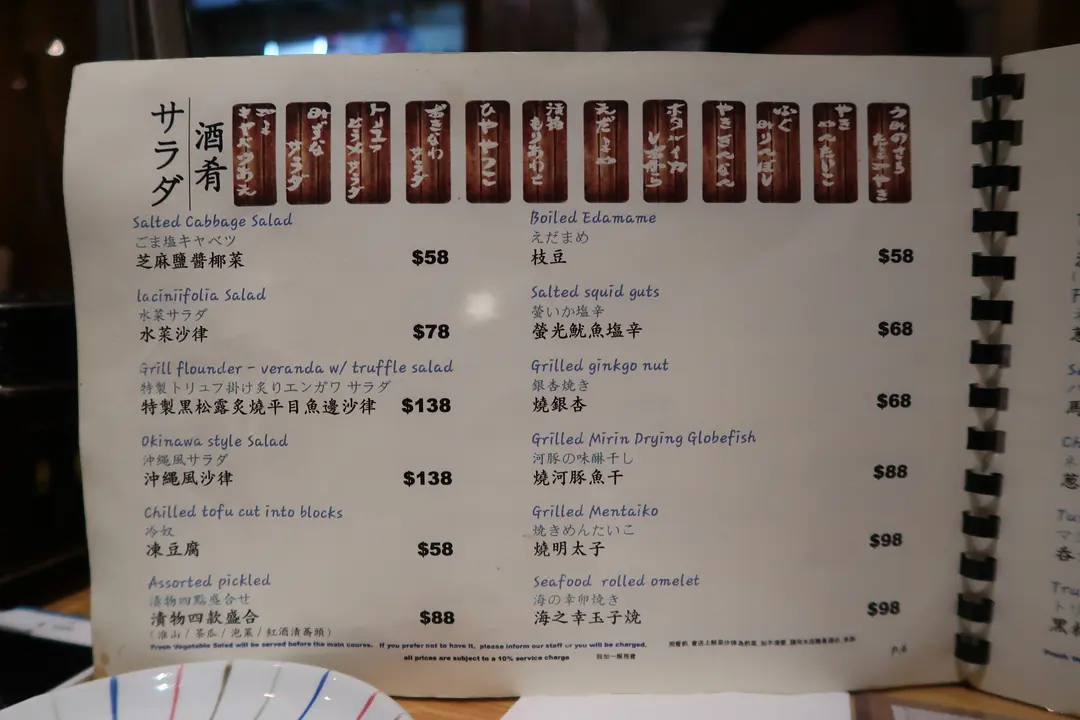 サラダ
酒肴
Salted Cabbage Salad
ごま塩キャベツ
芝麻鹽醬椰菜
$58
laciniifolia Salad
水菜サラダ
水菜沙律
$78
Grill flounder - veranda w/ truffle salad
特製トリュフ掛け炙りエンガワ サラダ
特製黒松露炙燒平目魚邊沙律
$138
Okinawa style Salad
沖縄風サラダ
沖繩風沙律
$138
Chilled tofu cut into blocks
冷奴
凍豆腐
$58
Assorted pickled
漬物四點盛合せ
漬物四款盛合
$88
(淮山 / 茶瓜 / 泡菜 / 紅酒漬蕎頭)
Boiled Edamame
えだまめ
枝豆
$58
Salted squid guts
螢いか塩辛
螢光魷魚塩辛
$68
Grilled ginkgo nut
銀杏焼き
燒銀杏
$68
Grilled Mirin Drying Globefish
河豚の味醂干し
燒河豚魚干
$88
Grilled Mentaiko
焼きめんたいこ
燒明太子
$98
Seafood rolled omelet
海の幸卵焼き
海之幸玉子焼
$98
Fresh Vegetable Salad will be served before the main course. If you prefer not to have it, please inform our staff or you will be charged.
all prices are subject to a 10% service charge
另加一服務費
p.6